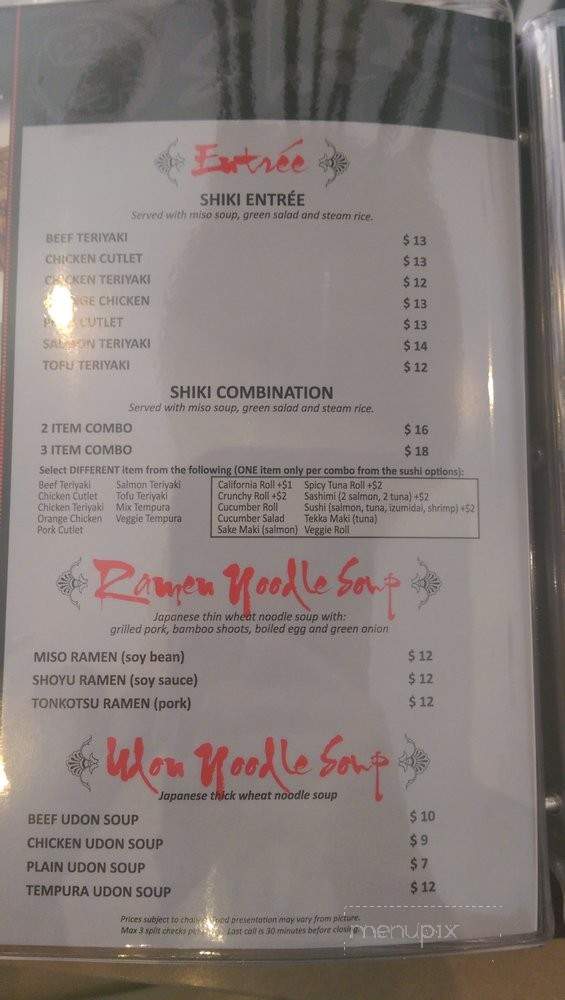 Entrée
SHIKI ENTRÉE
Served with miso soup, green salad and steam rice.
BEEF TERIYAKI $ 13
CHICKEN CUTLET $ 13
CHICKEN TERIYAKI $ 12
CHICKEN $ 13
CUTLET $ 13
SALMON TERIYAKI $ 14
TOFU TERIYAKI $ 12
SHIKI COMBINATION
Served with miso soup, green salad and steam rice.
2 ITEM COMBO $ 16
3 ITEM COMBO $ 18
Select DIFFERENT item from the following (ONE item only per combo from the sushi options):
Beef Teriyaki Salmon Teriyaki California Roll +$1 Spicy Tuna Roll +$2
Chicken Cutlet Tofu Teriyaki Crunchy Roll +$2 Sashimi (2 salmon, 2 tuna) +$2
Chicken Teriyaki Mix Tempura Cucumber Roll Sushi (salmon, tuna, izumidai, shrimp) +$2
Orange Chicken Veggie Tempura Cucumber Salad Tekka Maki (tuna)
Pork Cutlet Sake Maki (salmon) Veggie Roll
Ramen Noodle Soup
Japanese thin wheat noodle soup with:
grilled pork, bamboo shoots, boiled egg and green onion
MISO RAMEN (soy bean) $ 12
SHOYU RAMEN (soy sauce) $ 12
TONKOTSU RAMEN (pork) $ 12
Udon Noodle Soup
Japanese thick wheat noodle soup
BEEF UDON SOUP $ 10
CHICKEN UDON SOUP $ 9
PLAIN UDON SOUP $ 7
TEMPURA UDON SOUP $ 12
Prices subject to Food presentation may vary from picture.
Max 3 split checks Last call is 30 minutes before
menupix